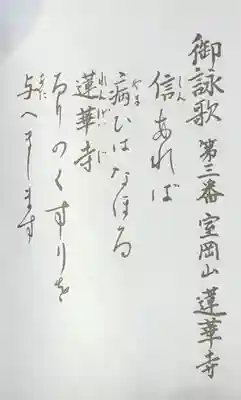 御詠歌 第三番 室岡山 蓮華寺
信あれば
病ひはなほる
蓮華寺
るりのくすりを
与へまします